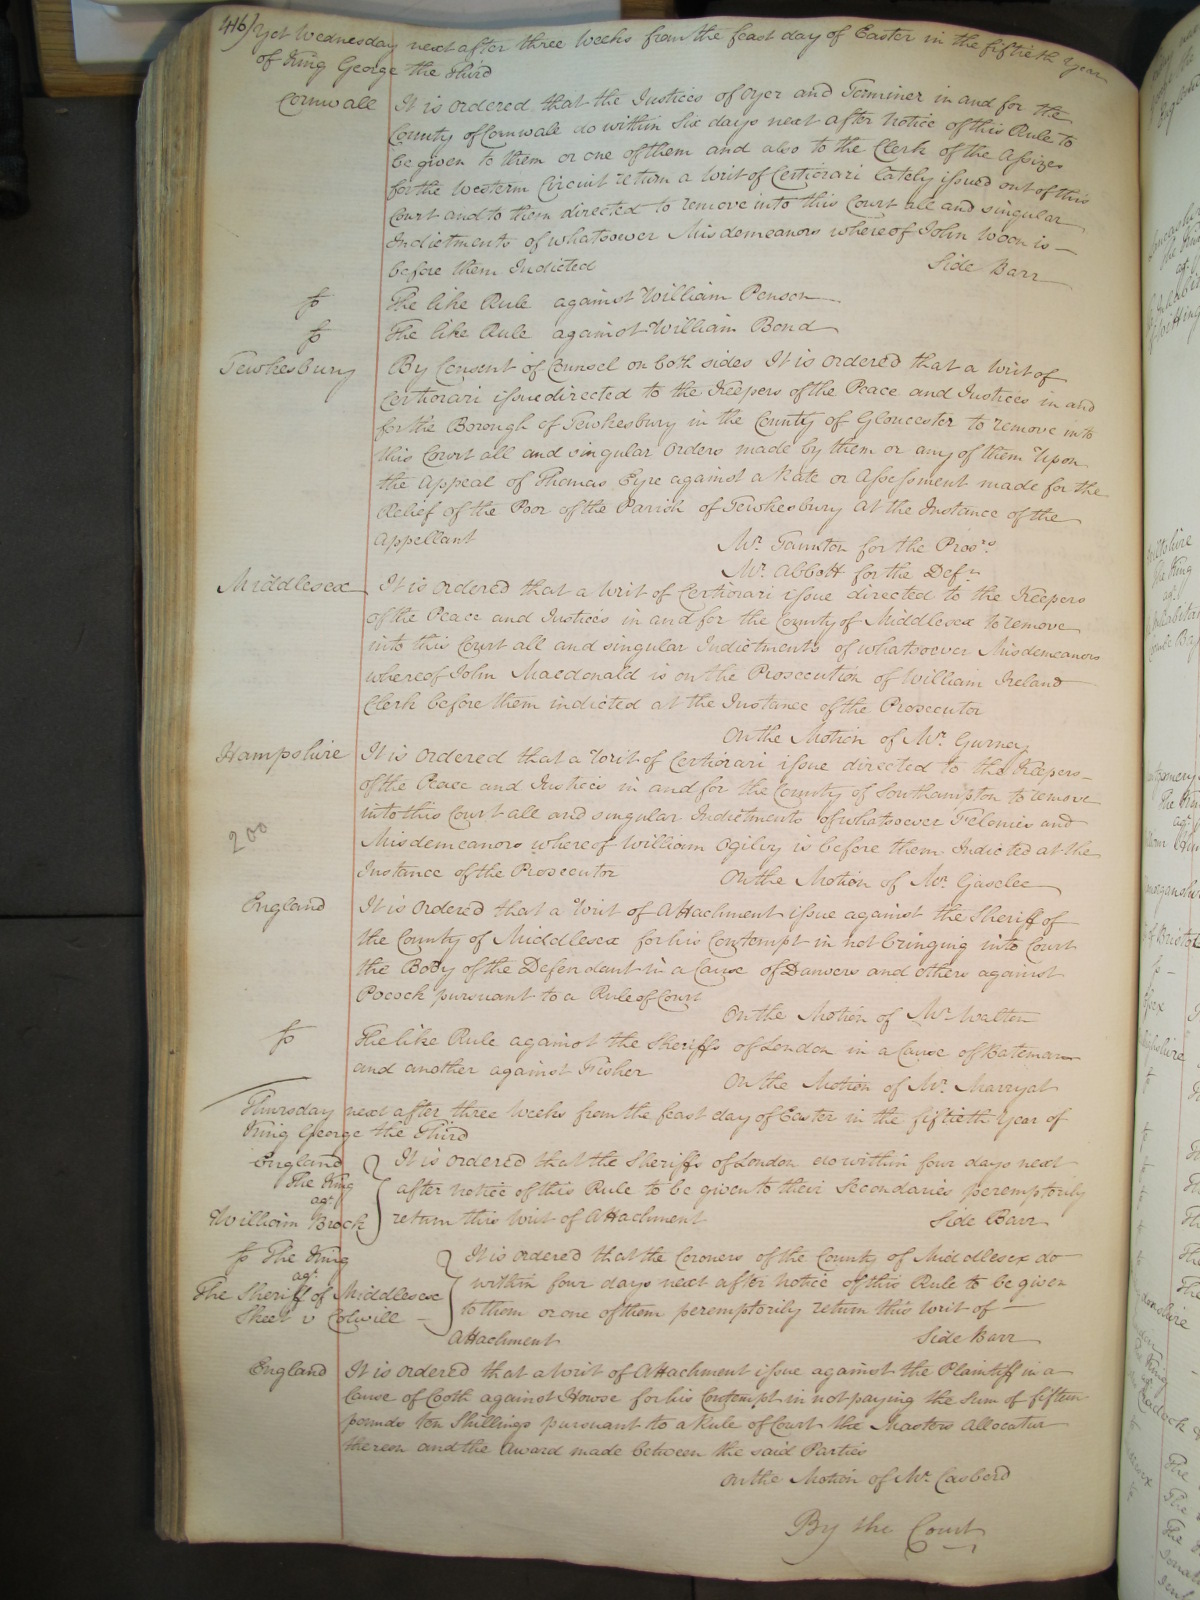 416) Yet Wednesday next after three Weeks from the feast day of Easter in the fiftieth Year
of King George the Third
Cornwall It is ordered that the Justices of Oyer and Terminer in and for the
County of Cornwall do within Six days next after notice of this Rule to
be given to them or one of them and also to the Clerk of the Assizes
for the Western Circuit return a Writ of Certiorari lately issued out of this
Court and to them directed to remove into this Court all and singular
Indictments of whatsoever Misdemeanors whereof John Woon is
before them Indicted Side Barr
The like Rule against William Penson
The like Rule against William Bond
Tewkesbury By Consent of Counsel on both sides It is ordered that a Writ of
Certiorari issue directed to the Keepers of the Peace and Justices in and
for the Borough of Tewkesbury in the County of Gloucester to remove into
this Court all and singular orders made by them or any of them Upon
the Appeal of Thomas Eyre against a Rate or Assessment made for the
Relief of the Poor of the Parish of Tewkesbury at the Instance of the
Appellant Mr. Taunton for the Pros.rs
Mr. Abbott for the Def.t
Middlesex It is ordered that a Writ of Certiorari issue directed to the Keepers
of the Peace and Justices in and for the County of Middlesex to remove
into this Court all and singular Indictments of whatsoever Misdemeanors
whereof John Macdonald is on the Prosecution of William Ireland
Clerk before them indicted at the Instance of the Prosecutor
On the Motion of Mr. Gurney
Hampshire It is ordered that a Writ of Certiorari issue directed to the Keepers
of the Peace and Justices in and for the County of Southampton to remove
into this Court all and singular Indictments of whatsoever Felonies and
Misdemeanors whereof William Ogilvy is before them Indicted at the
Instance of the Prosecutor On the Motion of Mr. Gaselee
200
England It is Ordered that a Writ of Attachment issue against the Sheriff of
the County of Middlesex for his Contempt in not bringing into Court
the Body of the Defendant in a Cause of Danvers and others against
Pocock pursuant to a Rule of Court
On the Motion of Mr. Walton
The like Rule against the Sheriffs of London in a Cause of Bateman
and another against Fisher On the Motion of Mr. Marryat
Thursday next after three Weeks from the feast day of Easter in the fiftieth Year of
King George the Third
England It is ordered that the Sheriffs of London do within four days next
The King after notice of this Rule to be given to their Secondaries peremptorily
agt.
William Brock return this Writ of Attachment Side Barr
The King It is ordered that the Coroners of the County of Middlesex do
agt. within four days next after notice of this Rule to be given
The Sheriff of Middlesex to them or one of them peremptorily return this Writ of
Skeet v Colwill Attachment Side Barr
England It is ordered that a Writ of Attachment issue against the Plaintiff in a
Cause of Cooth against Howse for his Contempt in not paying the Sum of fifteen
pounds ten Shillings pursuant to a Rule of Court the Masters Allocatur
thereon and the Award made between the said Parties
On the Motion of Mr. Casberd
By the Court